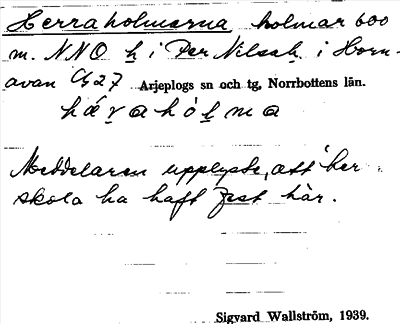 Herraholmarna holmar 600
m. NNO h i Per Nilsah. i Horn-
avan Arjeplogs sn och tg, Norrbottens län.
Meddelaren upplyste, att her
skola ha haft fest här.
Sigvard Wallström, 1939.